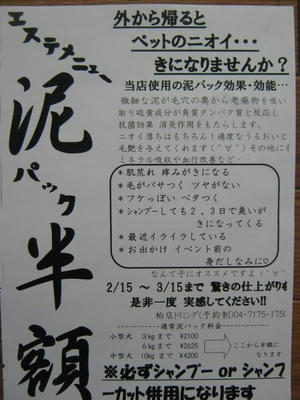 エステメニュー
泥パック半額
外から帰ると
ペットのニオイ・・・
きになりませんか？
当店使用の泥パック効果・効能…
微細な泥が毛穴の奥から老廃物を吸い
取り硫黄成分が角質タンパク質と反応し
抗菌効果 消炎作用をもたらします。
ニオイ落ちはもちろん！適度なうるおいと
毛艶を与えてくれます(´∀｀)その他にも
ミネラル吸収や血行改善など・・・
＊肌荒れ 痒みがきになる
＊毛がパサつく ツヤがない
＊フケっぽい ベタつく
＊シャンプーしても２、３日で臭いが
きになってくる
＊最近イライラしている
＊お出かけ イベント前の
身だしなみに♡
なんて子にオススメですよ(´∀｀
2/15 ～ 3/15まで 驚きの仕上がりを
是非一度 実感してください!!
柏店トリミング(予約制)04-7175-175
通常泥パック料金
小型犬 3kgまで ¥2100
6kgまで ¥2625
中型犬 10kgまで ¥4200
ここから半額に
なります
※必ずシャンプー or シャンプ
ーカット併用になります